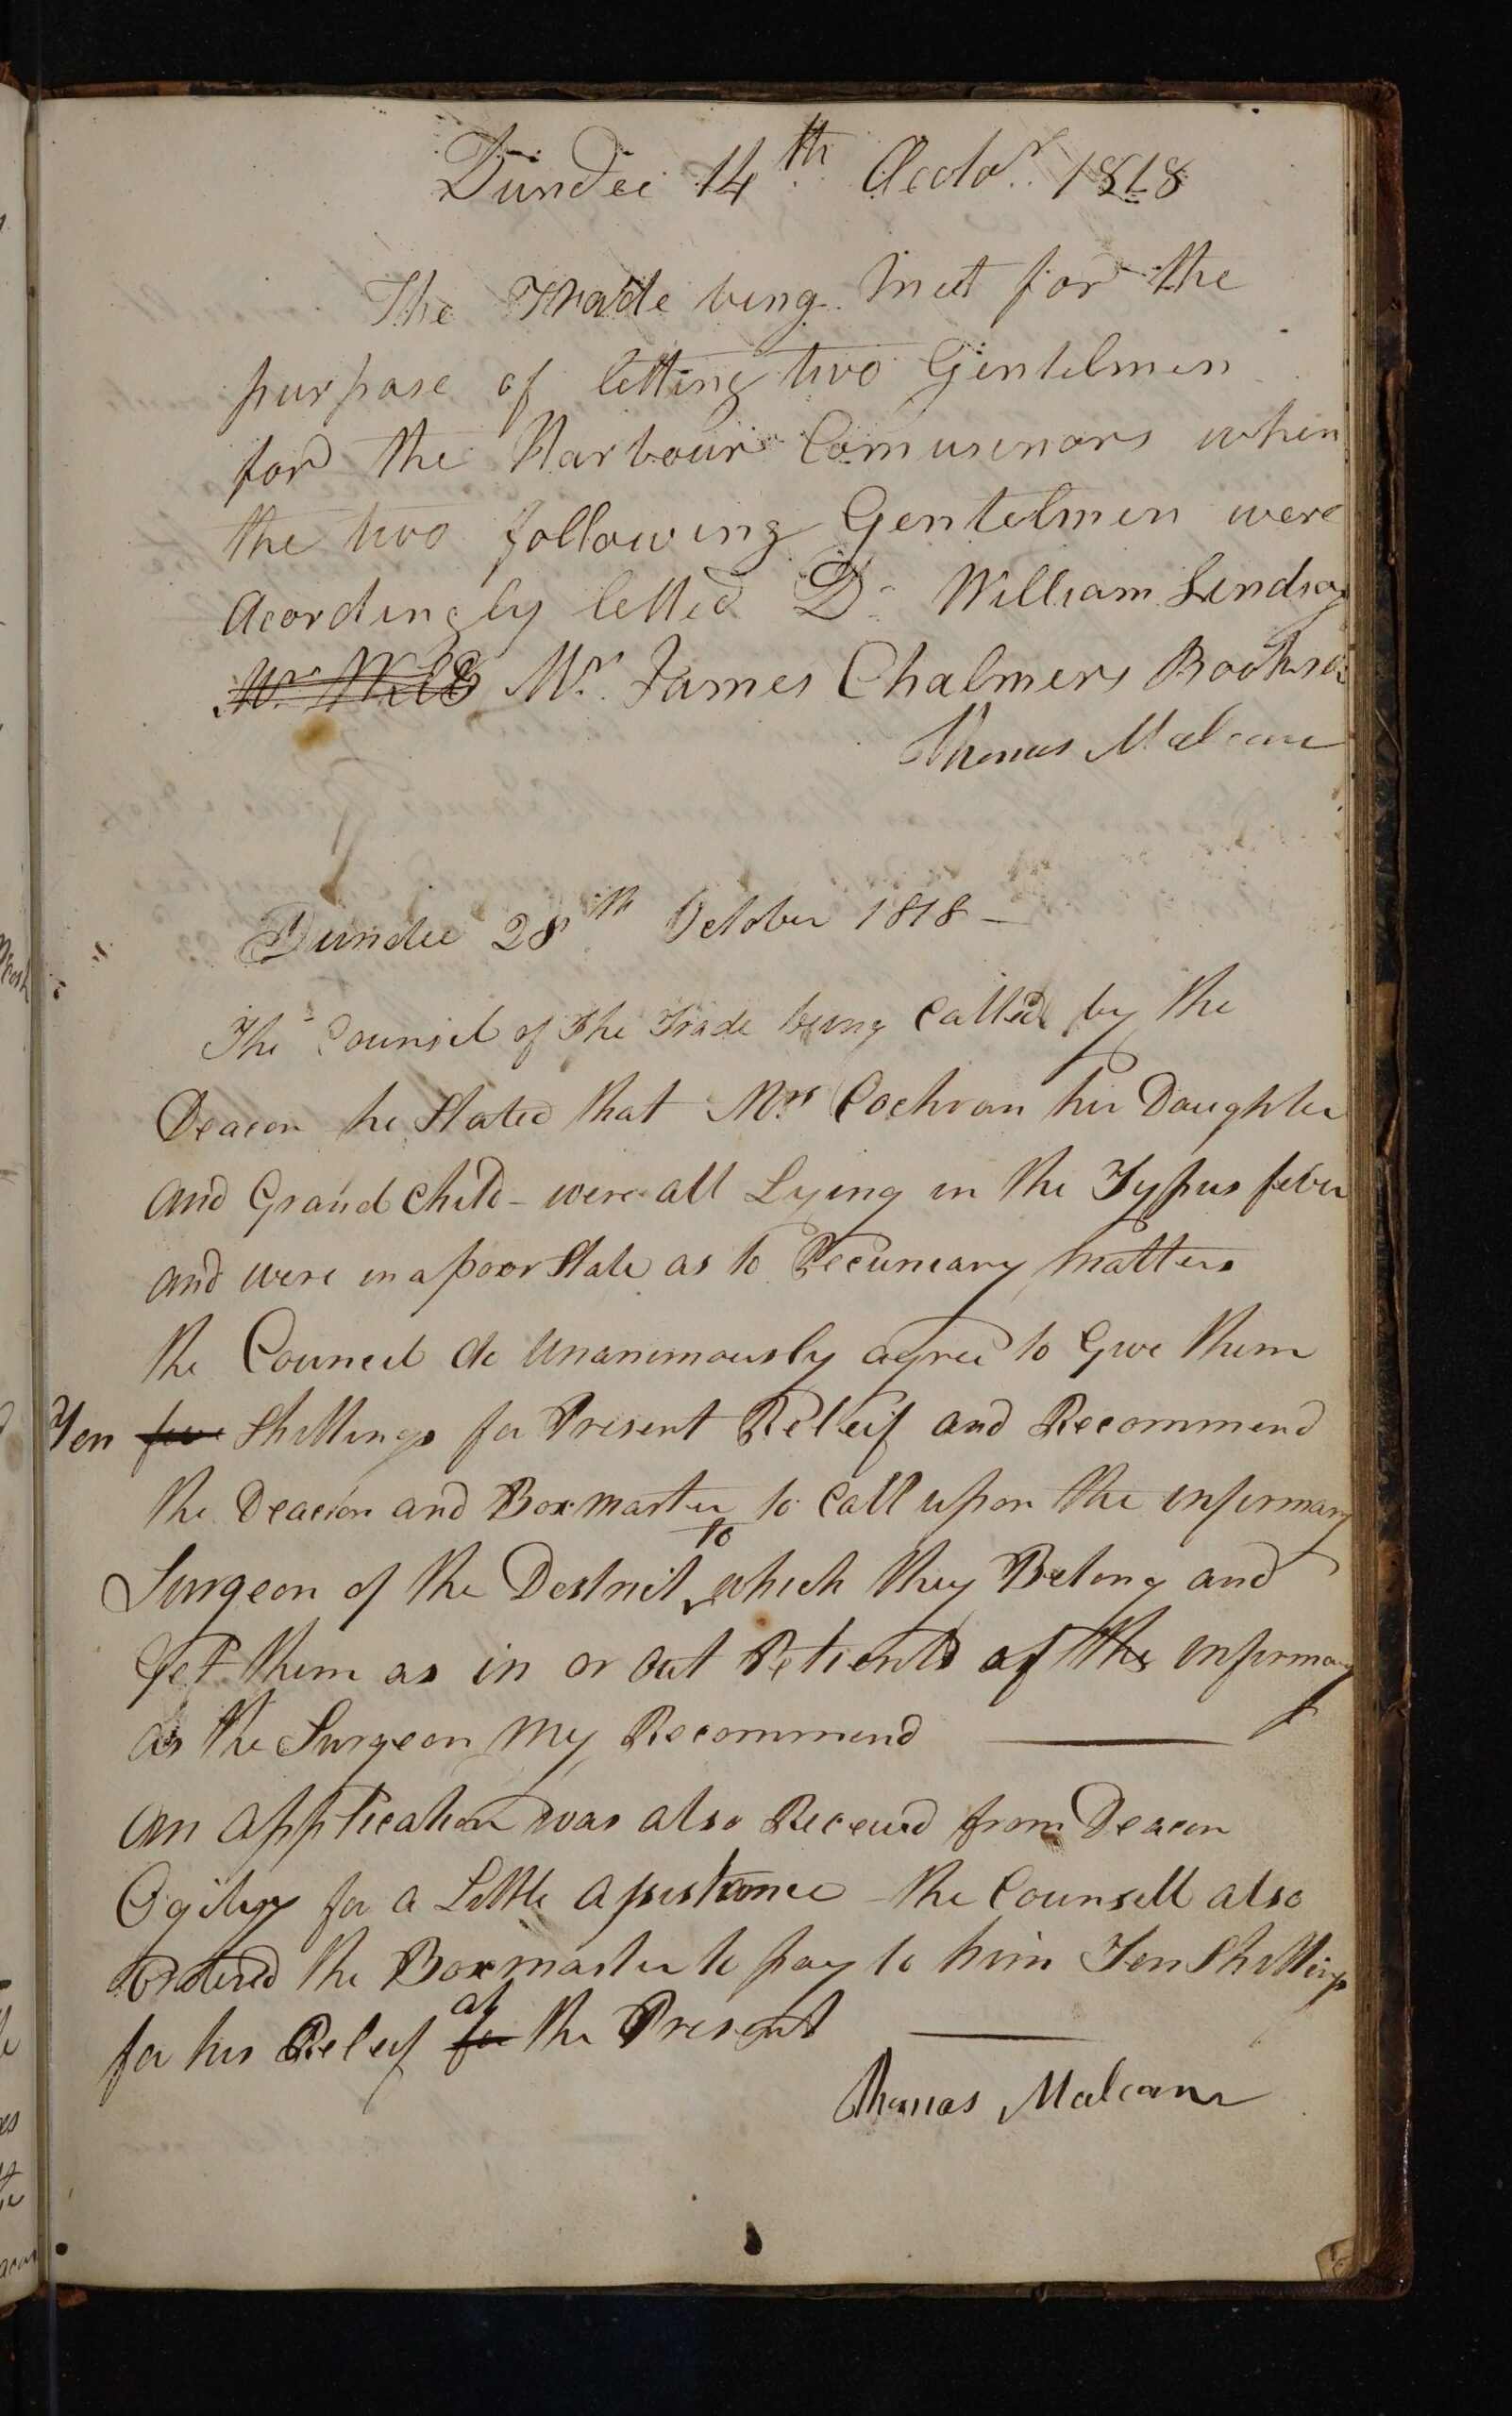 Dundee 14th Octor. 1818
The Trade being Meet for the
purpose of letting two Gentelmen
for the Harbour Comusinars when
the two following Gentelmen were
Acordingly letted Dn William Lindsay
Mr. Will Mr. James Chalmers Bookse
Thomas Malcom
Dundee 28th October 1818 –
The Counsil of the Trade being Called by the
Deacon he Stated that Mrs Cochran her Daughter
and Grand Child – were all Lying in the Typus fever
and were in a poor State as to Pecuneary Matters
the Council do Unanimously agree to Give them
Ten five Shillings for Present Releif and Recommend
the Deacion and Boxmaster to Call upon the infirmary
Surgeon of the Destrict to which they Belong and
Get them as in or out Petients of the infirmary
as the Surgeon My Recommend
An application was also Received from Deacon
Ogilvy for a Little assistance – the Counsell also
ordered the Boxmaster to pay to him Ten Shillings
for his Releif for at the Present
Thomas Malcom